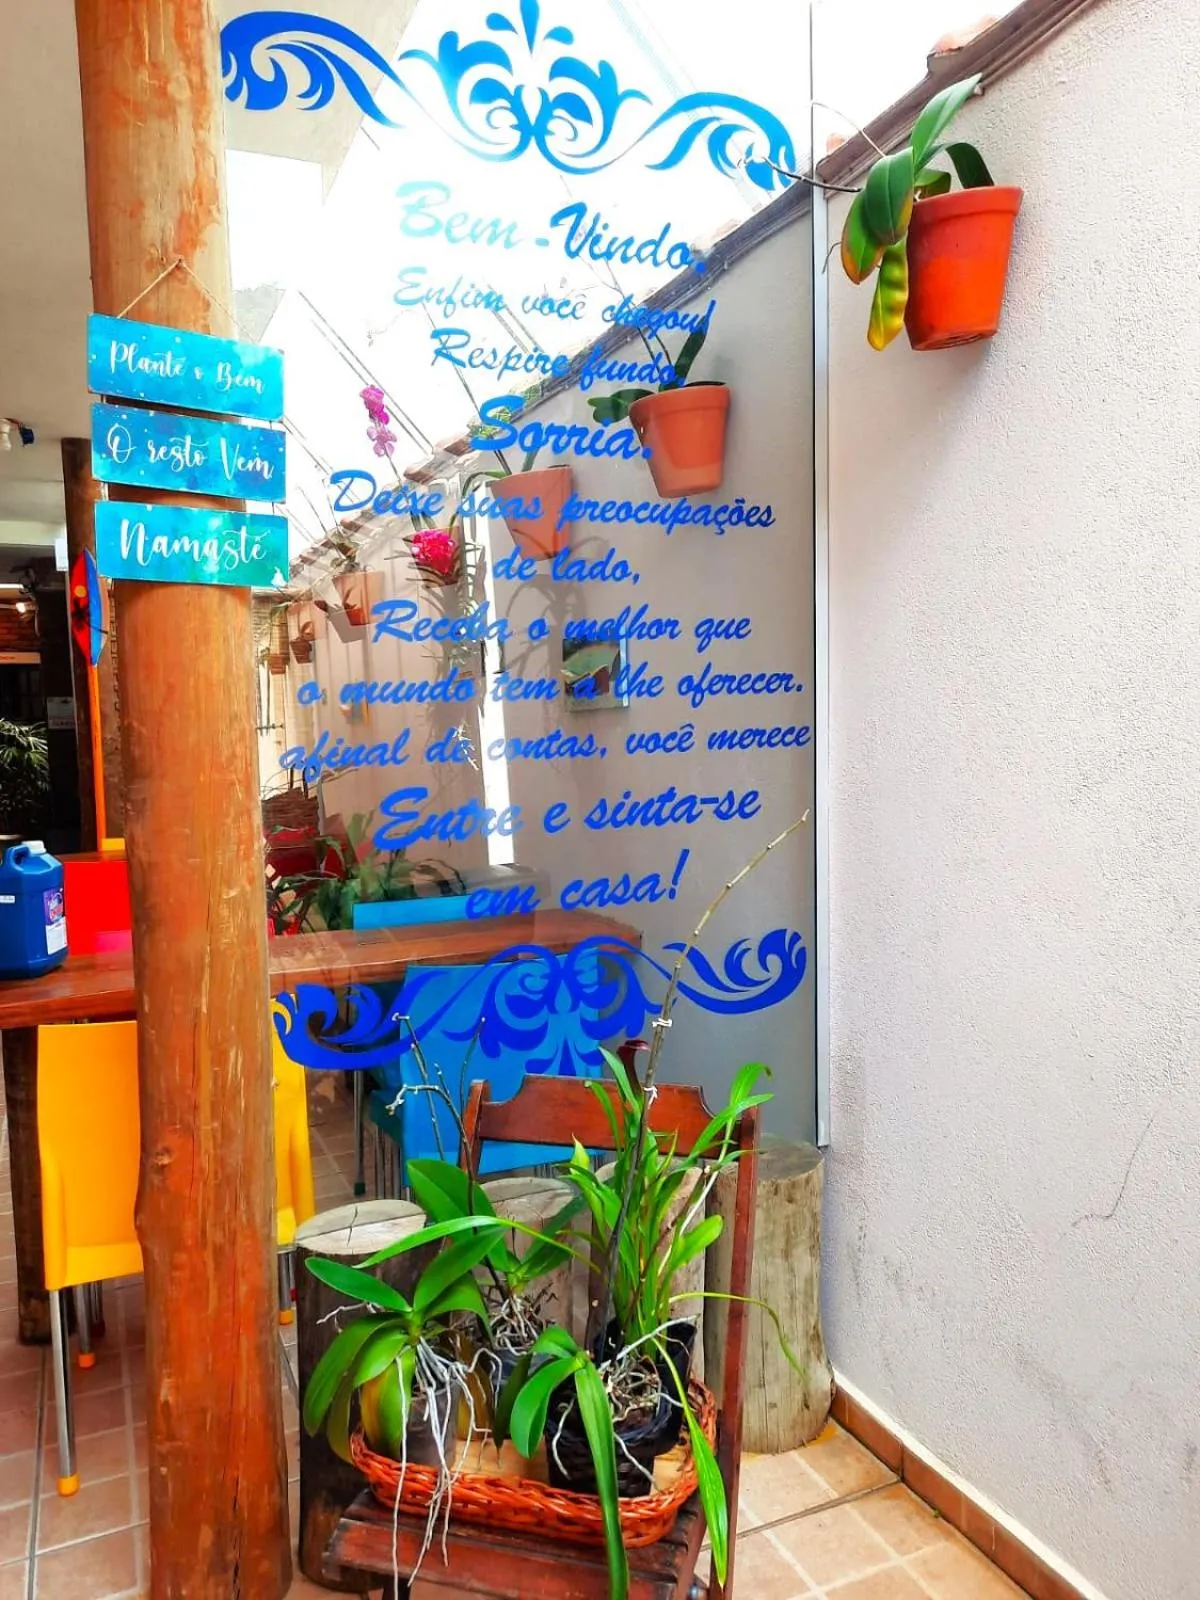 Plante o Bem
O resto Vem
Namastê
Bem-Vindo.
Enfim você chegou!
Respire fundo.
Sorria.
Deixe suas preocupações
de lado,
Receba o melhor que
o mundo tem a lhe oferecer.
afinal de contas, você merece
Entre e sinta-se
em casa!